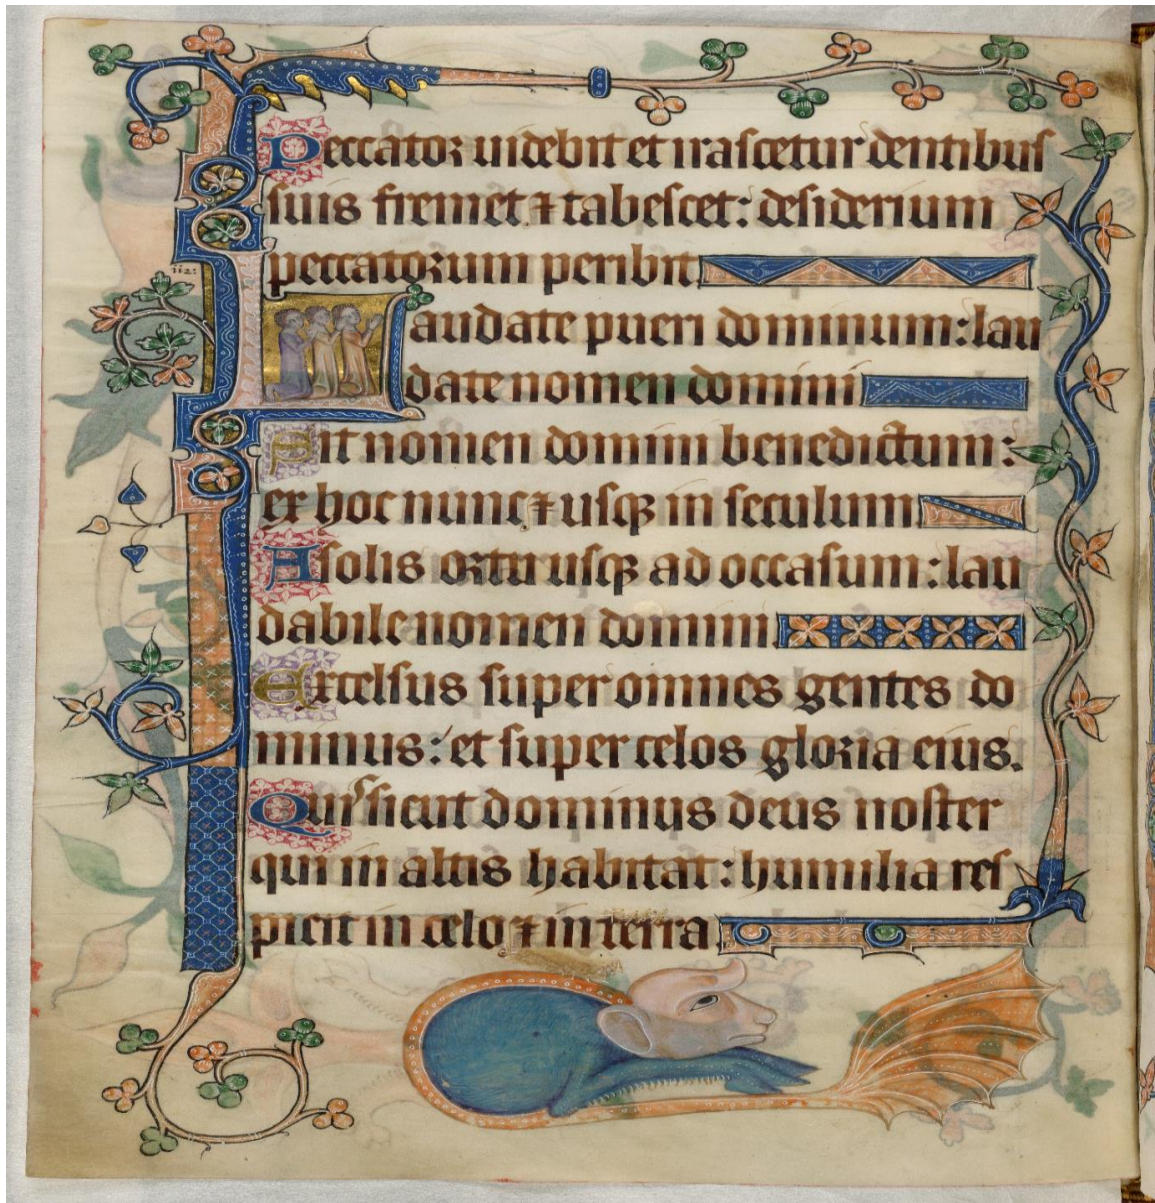 Peccator uidebit et irascetur dentibus
suis fremet ⁊ tabescet: desiderium
peccatorum peribit.
Laudate pueri dominum: lau
date nomen domini
Sit nomen domini benedictum:
ex hoc nunc ⁊ usqꝫ in seculum
A solis ortu usqꝫ ad occasum: lau
dabile nomen domini
Excelsus super omnes gentes do
minus: et super celos gloria eius.
Quis sicut dominus deus noster
qui in altis habitat: humilia res
picit in celo ⁊ in terra